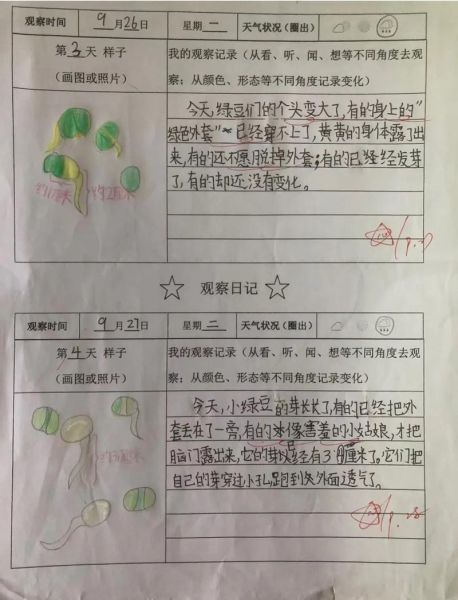 观察时间 9月26日 星期二 天气状况（圈出）
第3天 样子
（画图或照片）
我的观察记录（从看、听、闻、想等不同角度去观
察；从颜色、形态等不同角度记录变化）
今天，绿豆们的个头变大了，有的身上的“
绿色外套”已经穿不上了，黄黄的身体露了出
来，有的还不愿脱掉外套；有的已经经发芽
了，有的却还没有变化。
观察日记
观察时间 9月27日 星期三 天气状况（圈出）
第4天 样子
（画图或照片）
我的观察记录（从看、听、闻、想等不同角度去观
察；从颜色、形态等不同角度记录变化）
今天，小绿豆的芽长长了，有的已经把外
套丢在了一旁，有的像害羞的小姑娘，才把
脑门露出来，它的芽已经有3厘米了。它们把
自己的芽穿过小孔，跑到外面透气了。